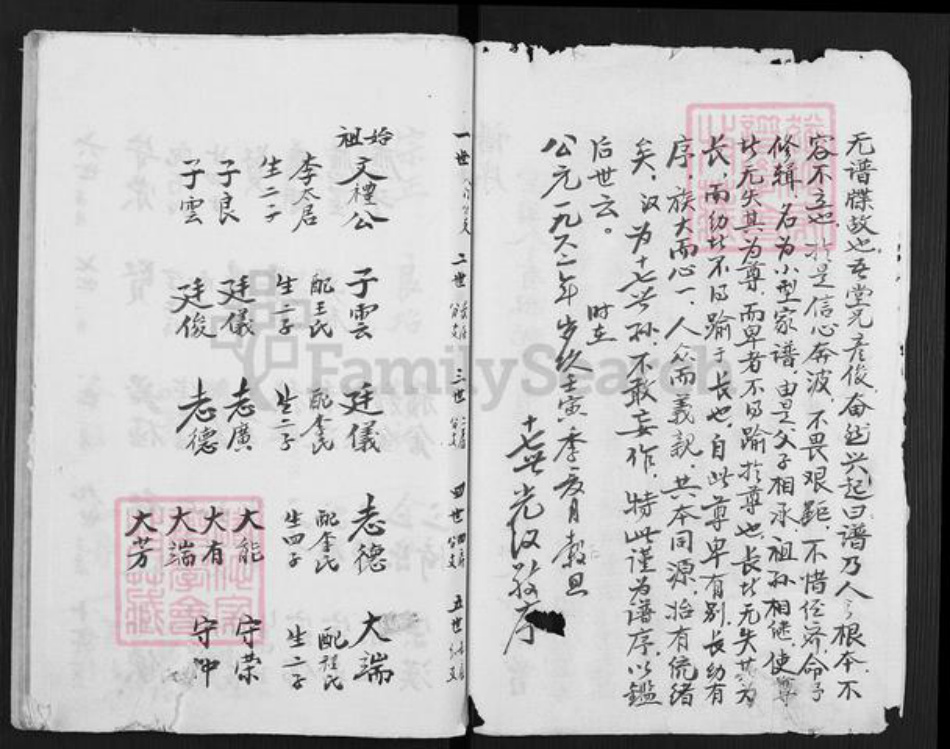 无谱牒故也.吾堂兄彦俊,奋然兴起曰谱乃人之根本.不
容不立也.于是信心奔波.不畏艰距.不惜经济.命予
修辑.名为小型家谱.由是父子相承.祖孙相继.使尊
者无失其为尊.而卑者不得踰於尊也.长者无失其为
长.而幼者不得踰于长也.自此尊卑有别.长幼有
序.族大而心一.人众而義親.共本同源.治有统绪
矣.汉为十七世孙.不敢妄作.特此谨为谱序.以鑑
后世云。
时在
公元一九六二年岁次壬寅季夏月穀旦
十七世光汉敬序
一世
始祖文禮公
李太君
生二子
子良
子雲
二世
子雲
配王氏
生二子
廷儀
廷俊
三世
廷儀
配李氏
生二子
志廣
志德
四世
志德
配李氏
生四子
大能
大有
大端
大芳
五世
大端
配程氏
生二子
守荣
守仲
FamilySearch